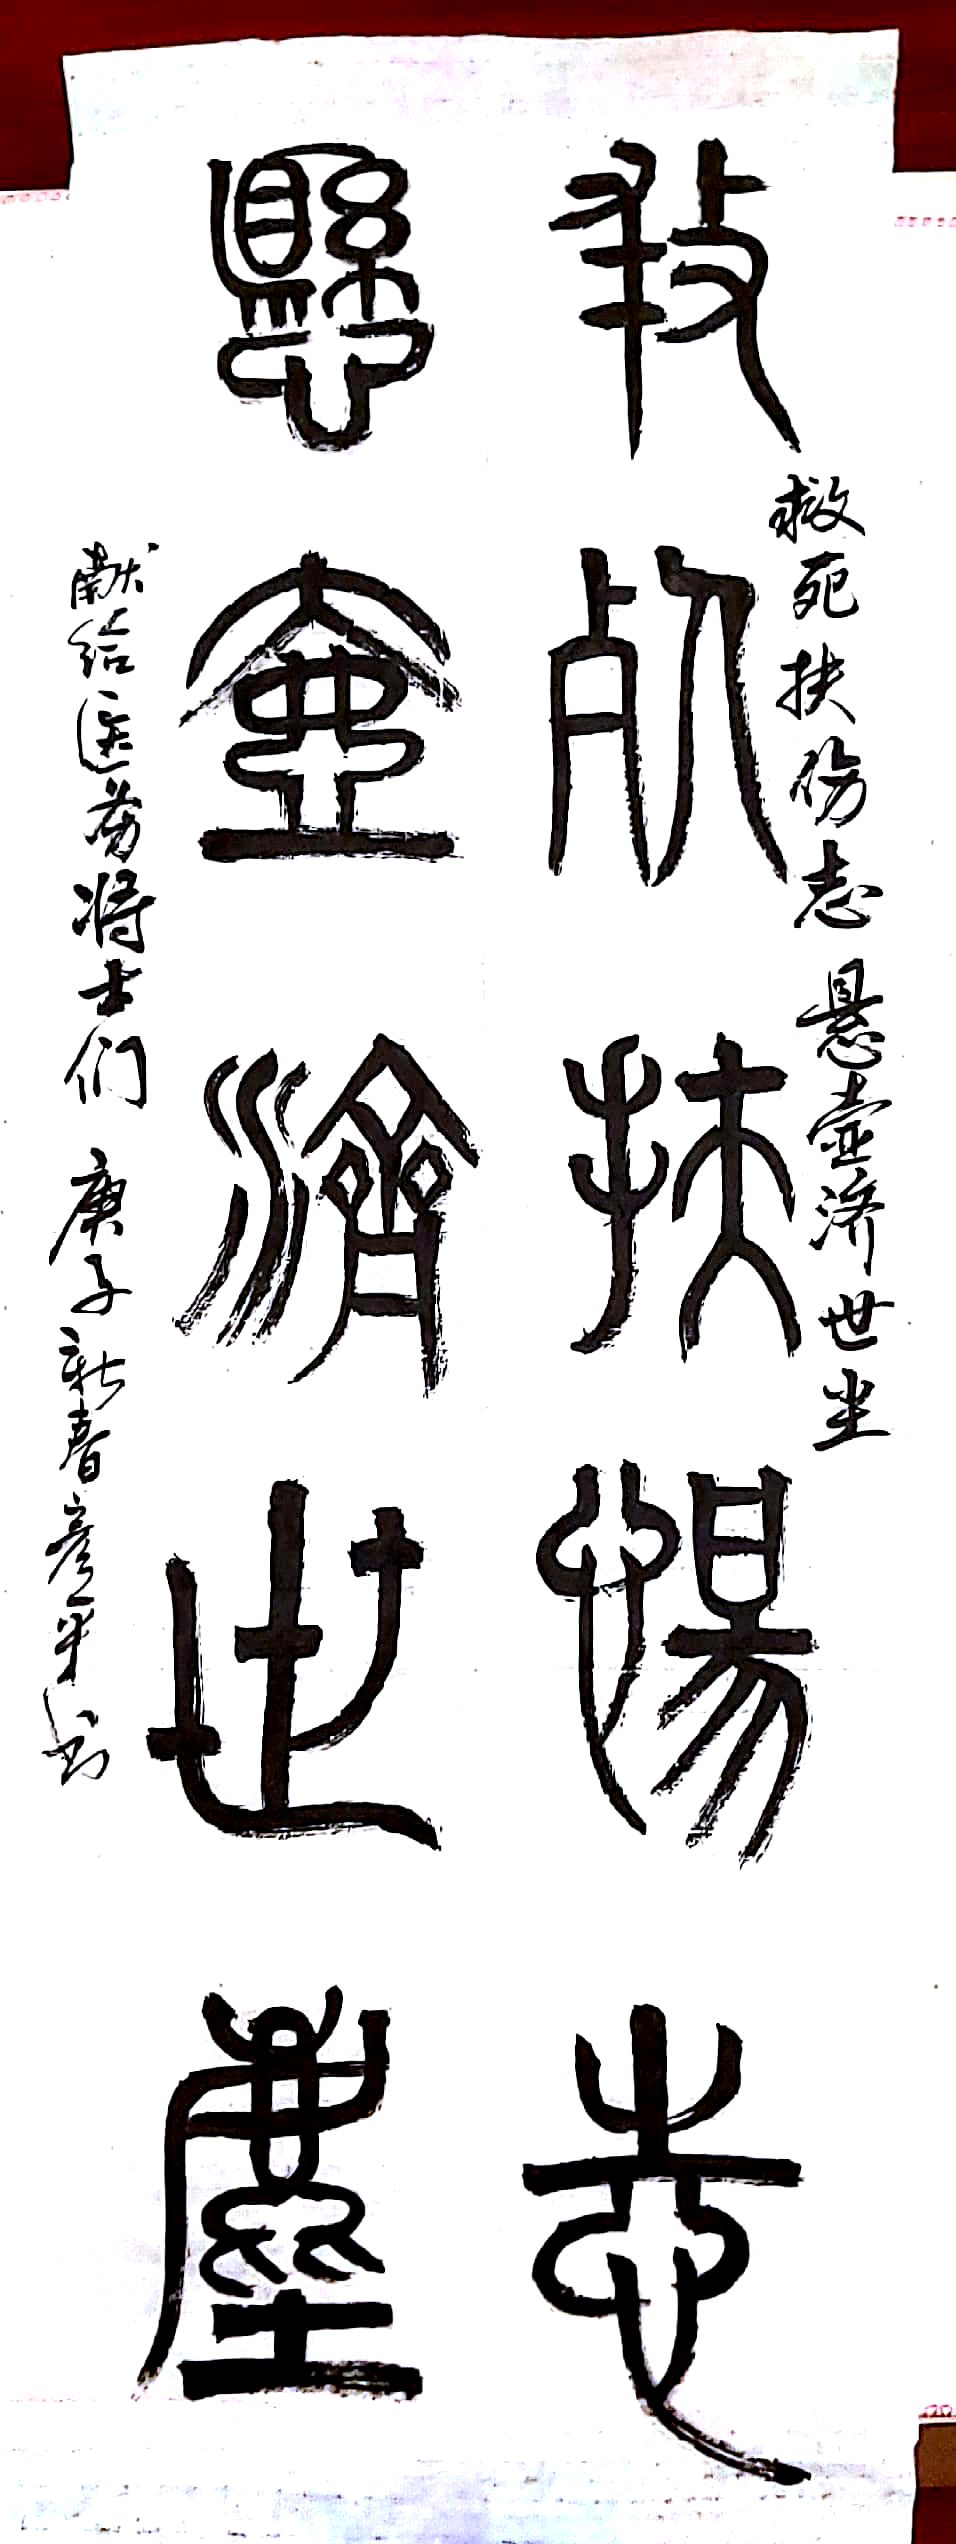 救死扶伤志 悬壶济世尘
救死扶傷志
懸壺濟世塵
献给医务将士们 庚子新春彦平书